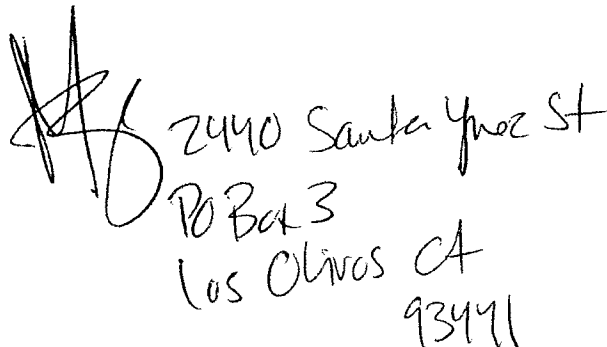 2440 Santa Ynez St
PO Box 3
Los Olivos CA
93441